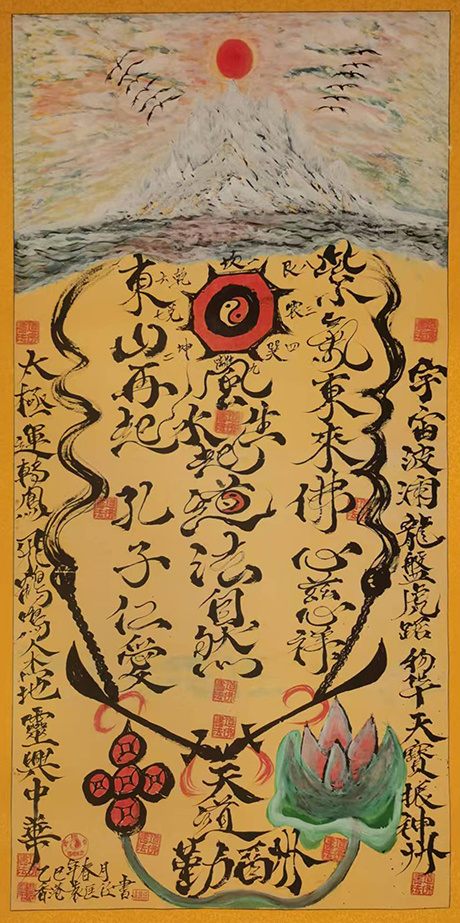 宇宙波瀾龍盤虎踞物華天寶振神州
紫氣東來佛心慈祥
風生水起道法自然
東山再起孔子仁愛
太極運轉鳳飛鶴鳴人杰地靈興中華
坎一
艮八
震三
巽四
離九
坤二
兌七
乾六
天道
酬勤
乙巳年春月
香港袁書